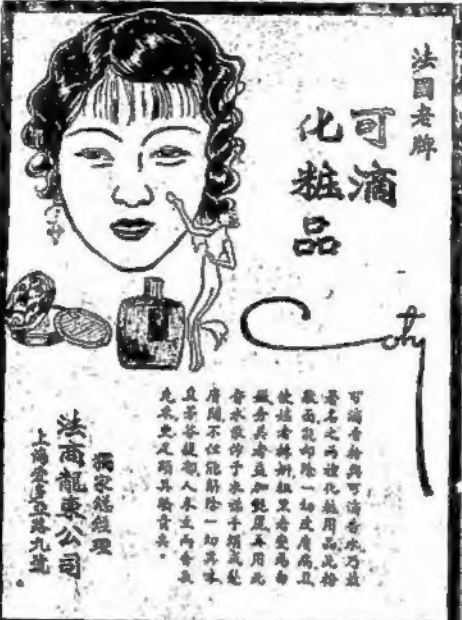 法國老牌
可滴
化粧品
Coty
可滴香粉與可滴香水乃最
著名之兩種化粧用品此粉
敷面能却除一切皮膚病且
使 者 粗黑者變為白
嫩 美者益加艷麗再用此
香水 于衣襟手絹或髮
膚間不但能辟除一切臭味
且芬芳馥郁人未至而香氣
先來更足顯其嬌貴矣。
獨家總經理
法商龍東公司
上海愛多亞路九號